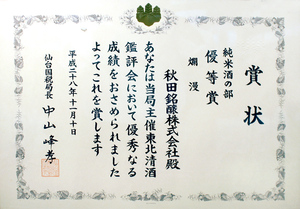 賞状
純米酒の部
優等賞
爛漫
秋田銘醸株式会社殿
あなたは当局主催東北清酒
鑑評会において優秀なる
成績をおさめられました
よってこれを賞します
平成二十八年十一月十日
仙台国税局長
中山峰孝